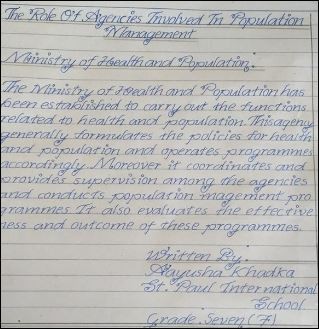 The Role Of Agencies Involved In Population
Management
Ministry of Health and Population.
The Ministry of Health and Population has
been established to carry out the functions
related to health and population. This agency
generally formulates the policies for health
and population and operates programmes
accordingly. Moreover it coordinates and
provides supervision among the agencies
and conducts population magement pro
grammes. It also evaluates the effective
ness and outcome of these programmes.
Written By:
Aayusha Khadka
St. Paul International
School.
Grade: Seven (7)